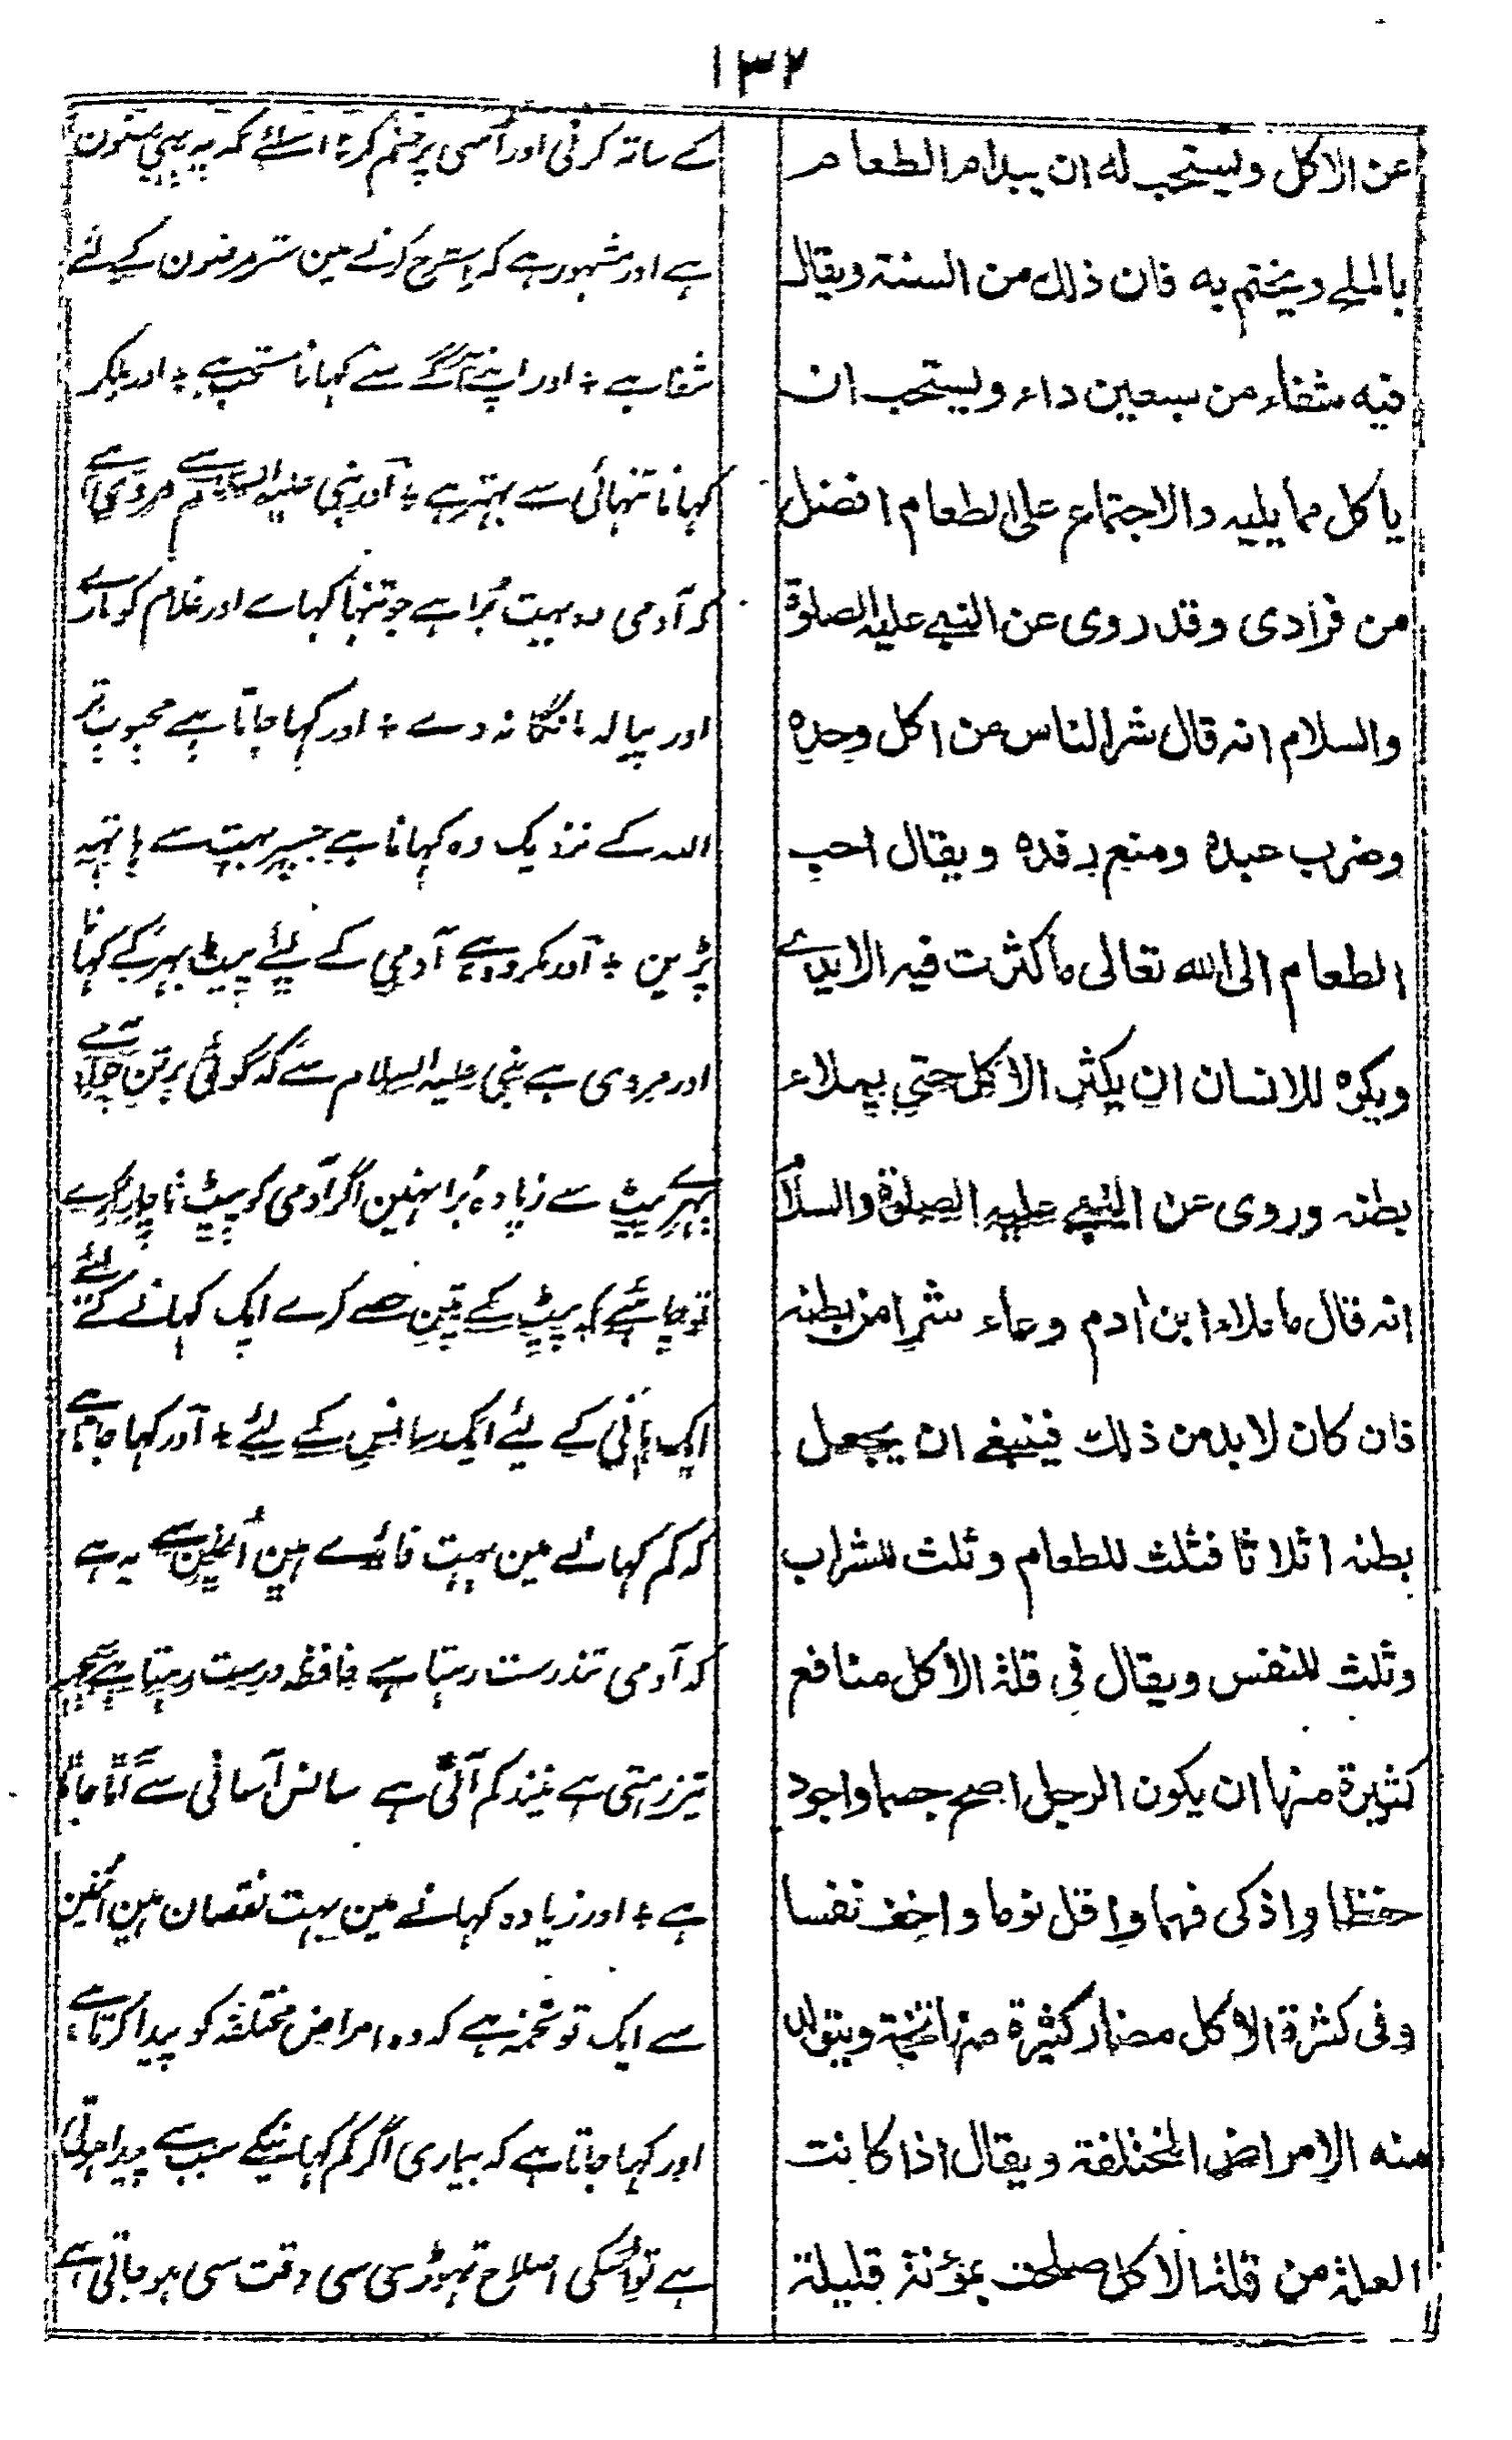 ١٣٢
عن الاكل ويستحب له ان يبدأ م الطعام
بالملح ويختم به فان ذلك من السنة ويقال
فيه شفاء من سبعين داء ويستحب ان
ياكل مما يليه والاجتماع على الطعام افضل
من فرادى وقد روى عن النبي عليه الصلوة
والسلام انه قال شر الناس من اكل وحده
وضرب عبده ومنع رفده ويقال احب
الطعام الى الله تعالى ماكثرت فيه الايدے
ويكره للانسان ان يكثر الاكل حتى يملاء
بطنه وروى عن النبي عليه الصلوة والسلام
انه قال ما ملاء ابن ادم وعاء شرا من بطنه
فان كان لابد من ذلك فينبغے ان يجعل
بطنه اثلاثا فثلث للطعام وثلث للشراب
وثلث للنفس ويقال فى قلة الاكل منافع
كثيرة منها ان يكون الرجل اصح جسما واجود
حفظا واذكى فهما واقل نوما واخف نفسا
وفى كثرة الاكل مضار كثيرة منها تخمة ويتولد
منه الامراض المختلفة ويقال اذا كانت
العلة من قلة الاكل صلحت بمؤنة قليلة
کے ساتہ کرنی اور اُسی پر ختم کرنا اسلئے کہ یہ ہی مسنون
ہے اور مشہور ہے کہ اسطرح کرنے مین ستر مرضون کے لئے
شفا ہے ÷ اور اپنے آگے سے کہانا مستحب ہے ÷ اور ملکر
کہانا تنہائی سے بہتر ہے ÷ آور نبی علیہ السلام سے مروی ہے
کہ آدمی وہ بہت بُرا ہے جو تنہا کہاے اور غلام کو مارے
اور پیالہ مانگا نہ دے ÷ اور کہا جاتا ہے محبوب تر
اللہ کے نزدیک وہ کہانا ہے جسپر بہت سے ہاتہہ
پڑین ÷ آور مکروہ ہے آدمی کے لئے پیٹ بہر کے کہانا
اور مروی ہے نبی علیہ السلام سے کہ کوئی برتن
بہرے پیٹ سے زیادہ بُرا نہین اگر آدمی کو پیٹ ناچار کرے
تو چاہئے کہ پیٹ کے تین حصے کرے ایک کہانے کے لئے
ایک پانی کے لئے ایک سانس کے لئے ÷ آور کہا جاتا ہے
کہ کم کہانے مین بہت فائدے ہین اُنمین سے یہ ہے
کہ آدمی تندرست رہتا ہے حافظہ درست رہتا ہے سمجہہ
تیز رہتی ہے نیند کم آتی ہے سانس آسانی سے آتا جاتا
ہے ÷ اور زیادہ کہانے مین بہت نقصان ہین اُنمین
سے ایک تو تخمہ ہے کہ وہ امراض مختلفہ کو پیدا کرتا ہے
اور کہا جاتا ہے کہ بیماری اگر کم کہانیکے سبب سے پیدا ہوتی
ہے تو اُسکی اصلاح تہوڑی سی دقت سی ہو جاتی ہے